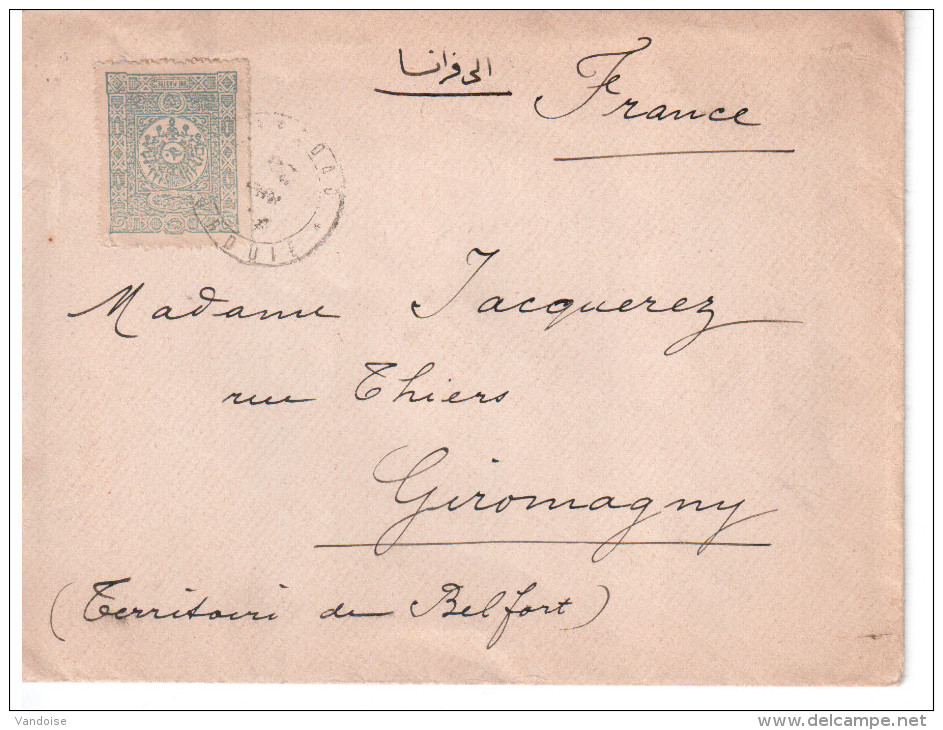 الى فرانسا
France
Madame Jacquerez
rue Thiers
Giromagny
(Territoire de Belfort)
Vandoise
delcampe.net